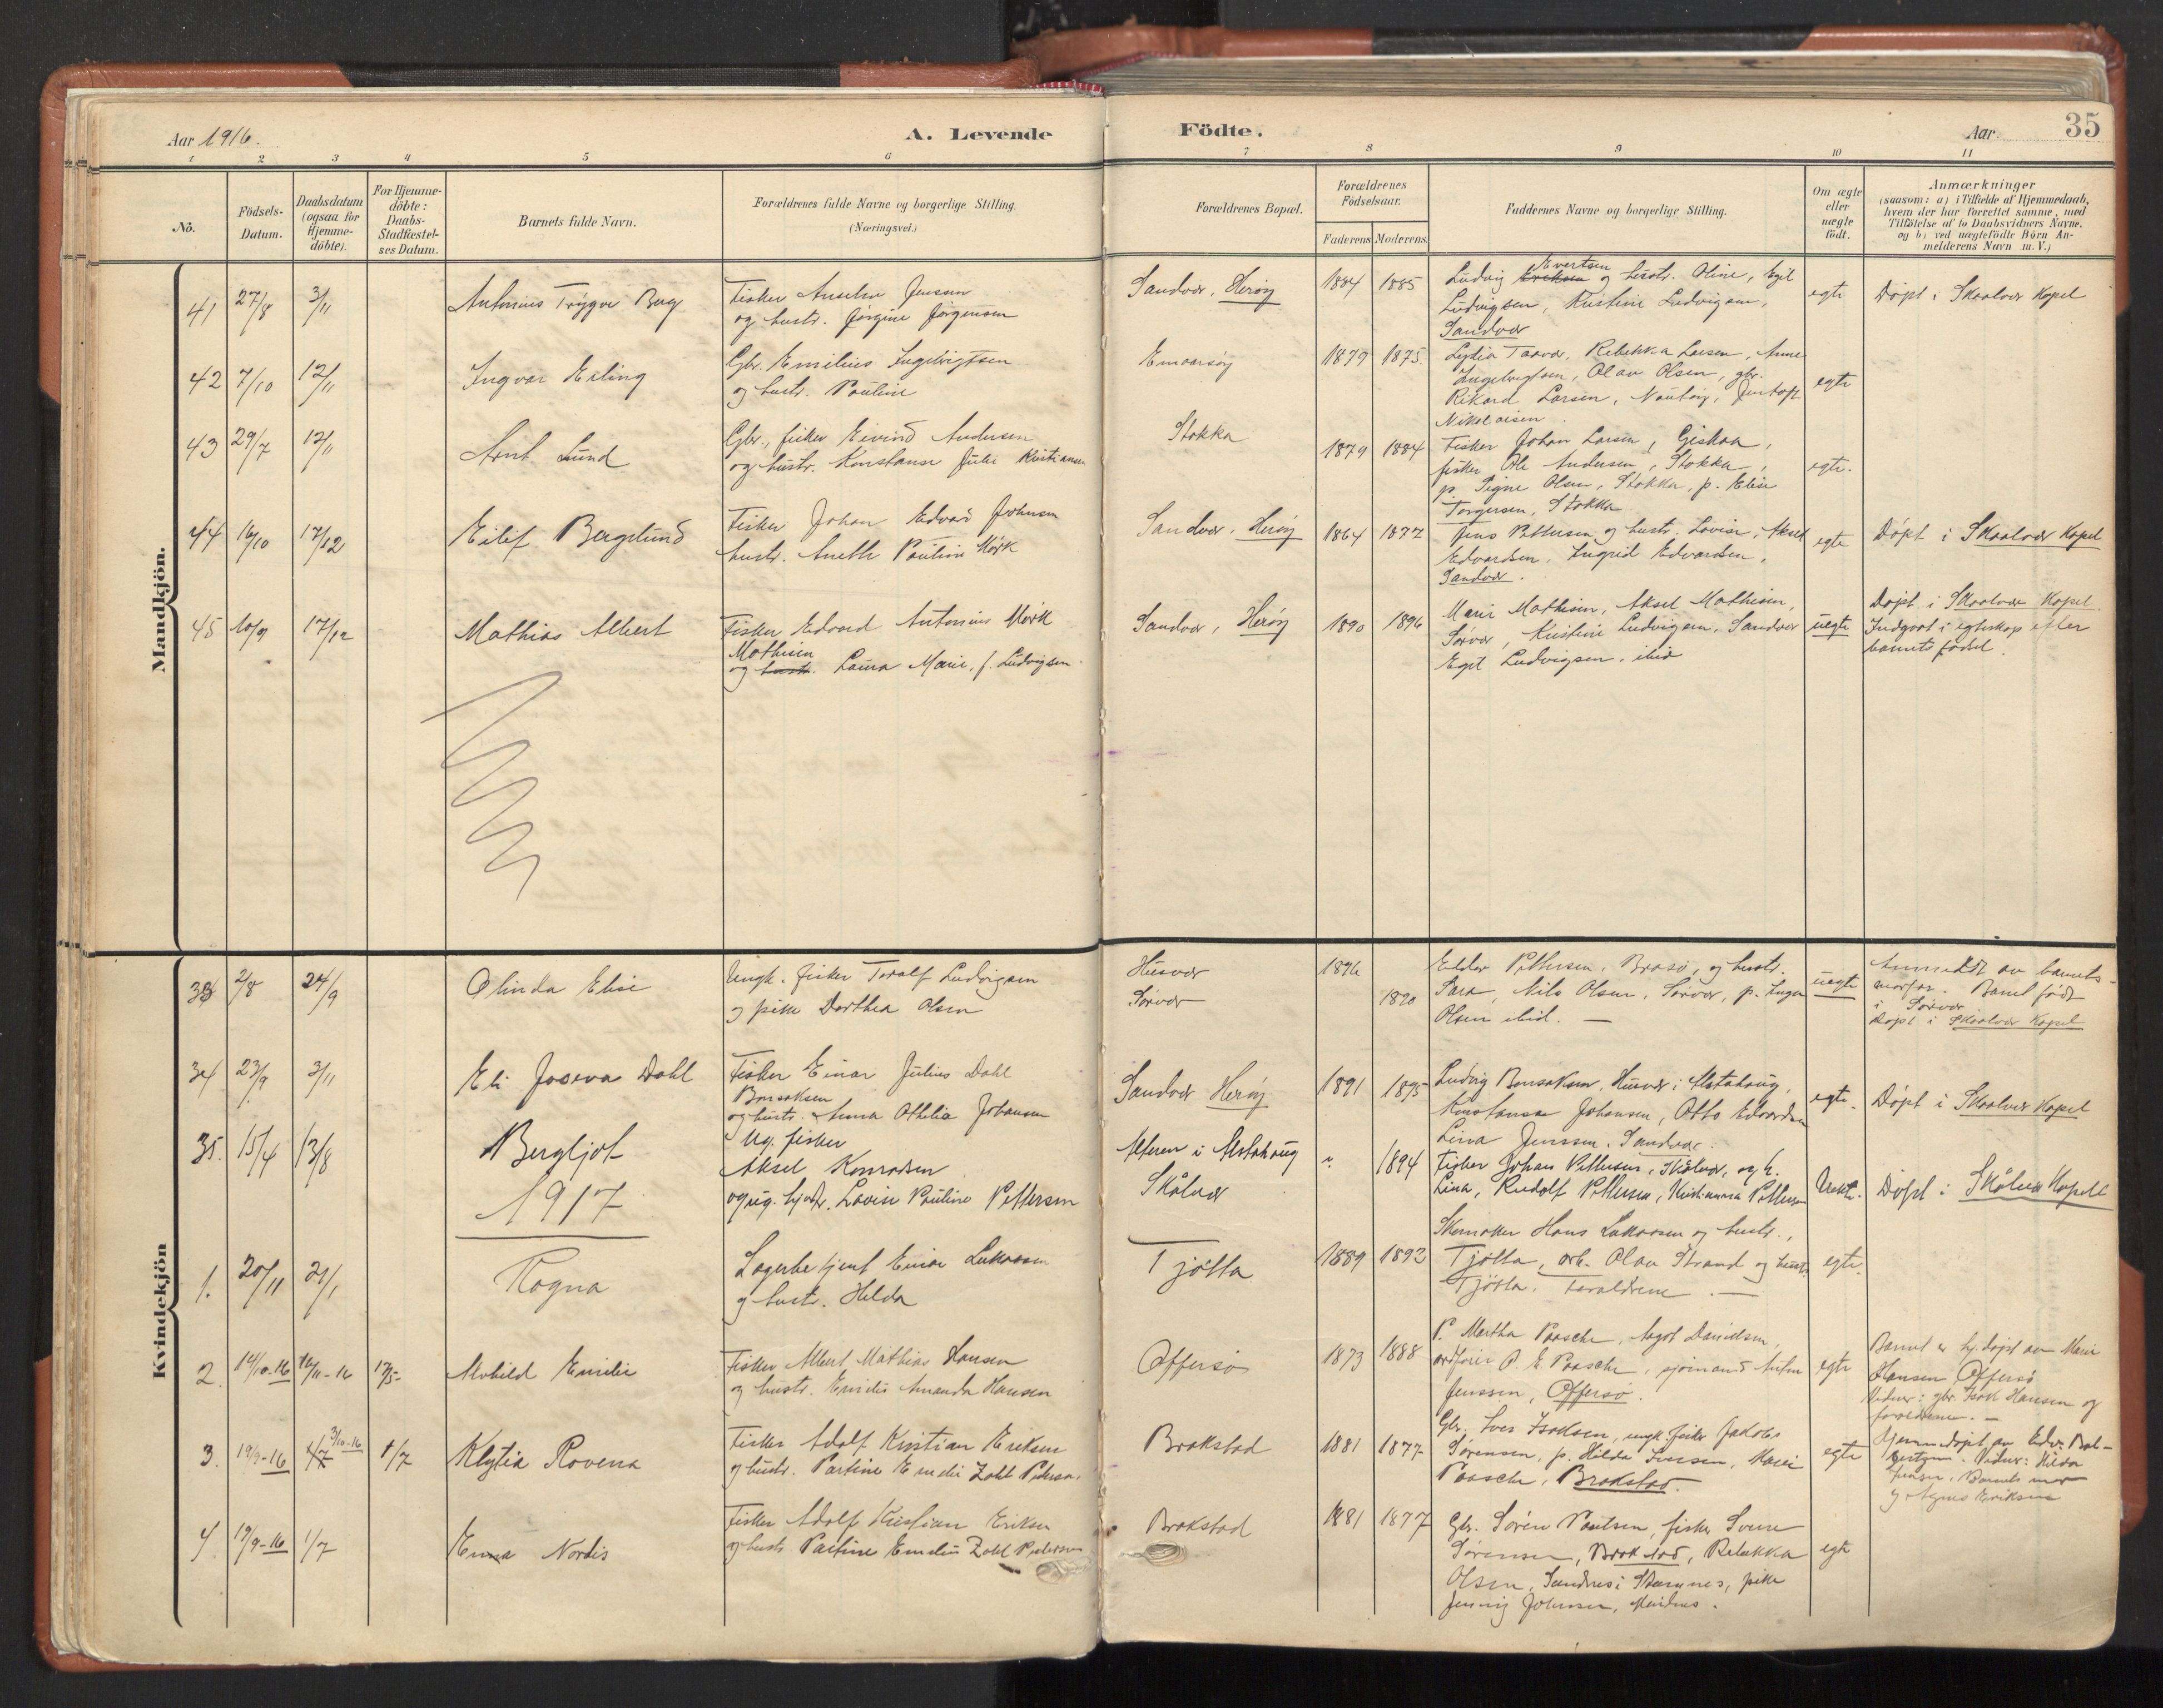 Aar 1916.
A. Levende
Födte.
Aar.
35
1 2 3 4 5 6
7 8 9 10 11
No.
Födsels-
Datum.
Daabsdatum
(ogsaa for
Hjemme-
döbte).
For Hjemme-
döbte:
Daabs-
Stadfæstel-
ses Datum.
Barnets fulde Navn.
Forældrenes fulde Navne og borgerlige Stilling.
(Næringsvei.)
Forældrenes Bopæl.
Forældrenes
Födselsaar.
Faderens Moderens
Faddernes Navne og borgerlige Stilling.
Om ægte
eller
uægte
födt.
Anmærkninger
(saasom: a) i Tilfælde af Hjemmedaab,
hvem der har forrettet samme, med
Tilföielse af to Daabsvidners Navne,
og b) ved uægtefödte Børn An-
melderens Navn m. V.)
Mandkjön.
41 27/8 3/11
Antonius Trygve Berg
Fisker Anselm Jensen
og hustr. Jørgine Jørgensen
Sandvær, Herøy
1884 1885
Evertsen
Ludvig Eriksen og hustr. Oline, Egil
Ludvigsen, Kristine Ludvigsen,
Sandvær
egte
Døpt i Skaalvær Kapel
42 7/10 12/11
Ingvar Erling
Gbr. Emilius Ingebrigtsen
og hustr. Pauline
1879 1875
Lydia Tarvær, Rebekka Larsen, Anne
Ingebrigtsen, Olav Olsen, gbr.
Rikard Larsen,
Nikolaisen
egte
43 29/7 12/11
Arnt Lund
Gbr., fisker Eivind Andersen
og hustr. Konstanse Julie Kristiansen
Stokka
1879 1884
Fisker Johan Larsen, Giskaa,
fisker Ole Andersen, Stokka,
p. Signe Olsen, Stokka, p. Elise
Torgersen, Stokka
egte.
44 16/10 17/12
Eilif Berglund
Fisker Johan Edvard Johnsen
hustr. Anette Pauline Mørk
Sandvær, Herøy
1864 1877
Jens Pettersen og hustr. Lovise, Aksel
Edvardsen, Ingrid Edvardsen,
Sandvær.
egte
Døpt i Skaalvær Kapel
45 10/9 17/12
Mathias Albert
Fisker Edvard Antonius Mørk
Mathisen
og hustr. Laura Marie, f. Ludvigsen.
Sandvær, Herøy
1890 1896
Marie Mathisen, Aksel Mathisen,
Sørvær, Kristine Ludvigsen, Sandvær
Egil Ludvigsen, ibid
uegte
Døpt i Skaalvær Kapel.
Indgaat i egteskap efter
barnets fødsel.
Kvindekjön
33 2/8 24/9
Olinda Elise
Ungk. fisker Toralf Ludvigsen
og pike Dorthea Olsen
Husvær
Sørvær
1896
1890
Elder Pettersen, Brasø, og hustr.
Sara, Nils Olsen, Sørvær, p. Inga
Olsen ibid. —
uegte
Anmeldt av barnets
morfar. Barnet født
i Sørvær
Døpt i Skaalvær Kapel
34 23/9 3/11
Eli Joseva Dahl
Fisker Einar Julius Dahl
Bonsaksen
og hustr. Anna Othelia Johansen
Sandvær Herøy
1891 1895
Ludvig Bonsaksen, Husvær i Alstahaug,
Konstanse Johansen, Otto Edvardsen
Lina Jenssen, Sandvær.
egte.
Døpt i Skaalvær Kapel
35. 15/4 13/8
Bergljot
Ug. fisker
Aksel Konradsen
og ug. Lovise Pauline Pettersen
Alteren i Alstahaug
Skålvær
1894
Fisker Johan Pettersen, Skålvær, og h.
Lina, Rudolf Pettersen, Kristianna Pettersen
Uekte.
Døpt i Skålvær Kapell
1917
1. 20/11 21/1
Ragna
Lagerbetjent Einar Lukassen
og hustr. Hilda
Tjøtta
1889 1892
Skomaker Hans Lukassen og hustr.,
Tjøtta, arb. Olav Strand og hustr.
Tjøtta. Forældrene. —
egte.
2. 14/10-16 16/11-16 17/5
Alvhild Emilie
Fisker Albert Mathias Hansen
og hustr. Emilie Amanda Hansen
Offersø
1873 1888
P. Martha Paasche, Aagot Danielsen,
ordfører P. E. Paasche, sjømand Anton
Jenssen, Offersø.
egte
Barnet er hj. døpt av Marie
Hansen, Offersø
Vidner: gbr. Isak Hansen og
forældrene. —
3. 19/9-16 3/10-16 1/7 1/7
Klytia Rovena
Fisker Adolf Kristian Eriksen
og hustr. Partine Emelie Zahl Pedersen.
Brakstad
1881 1877
Gbr. Iver Isaksen, ungk. fisker Jakob
Sørensen, p. Hilda Jensen, Marie
Paasche, Brakstad.
egte
Hjemmedøpt av Edv.
Vidner: Hilda
Jensen, Barnets mor
og Agnes Eriksen
4 19/9-16 1/7
Enna Nordis
Fisker Adolf Kristian Eriksen
og hustr. Partine Emelie Zahl Pedersen
Brakstad
1881 1877
Gbr. Søren Paulsen, fisker Sverre
Sørensen, Brakstad, Rebekka
Olsen, Sandnes i Stamnes, pike
Jenny Johnsen,
egte